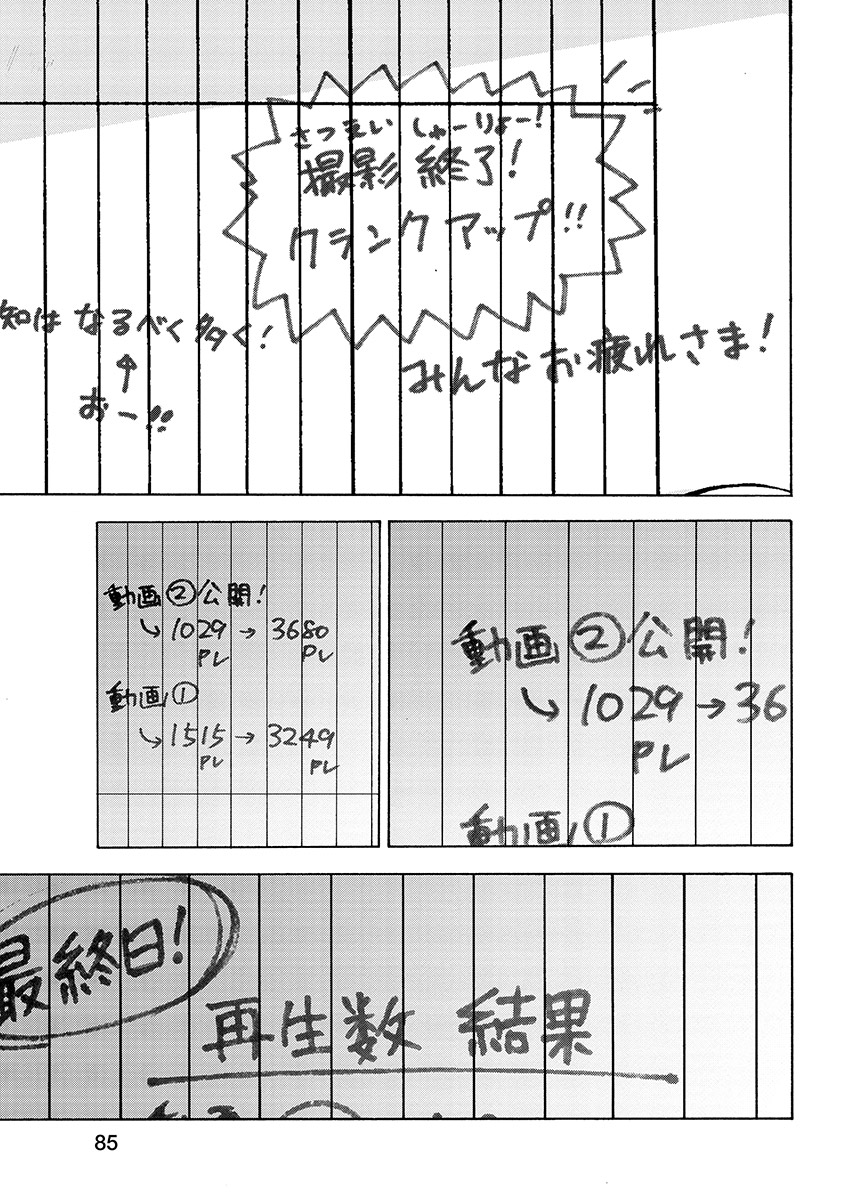 さつえい しゅーりょー!
撮影 終了!
クランクアップ!!
みんなお疲れさま!
知は なるべく多く!
↑
おー!!
動画②公開!
↳1029→36
PV
動画①
動画②公開!
↳1029→3680
PV PV
動画①
↳1515→3249
PV PV
最終日!
再生数 結果
85